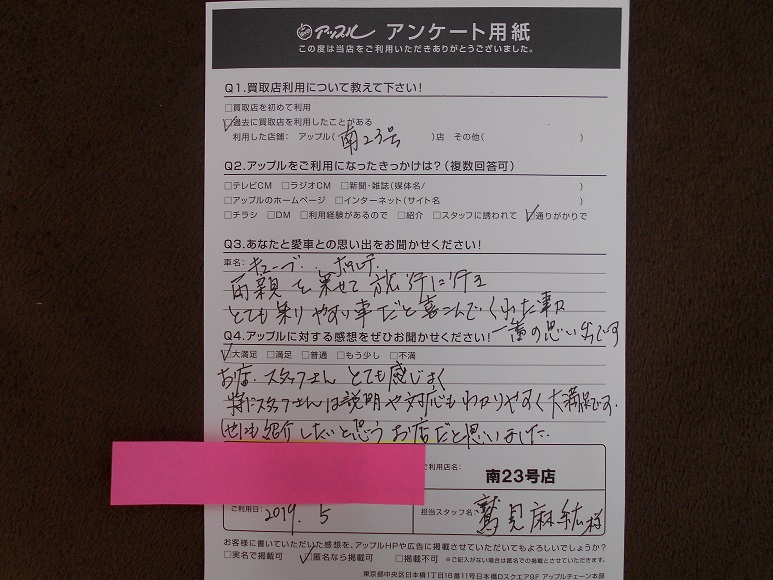 アップル アンケート用紙
この度は当店をご利用いただきありがとうございました。
Q1.買取店利用について教えて下さい!
□買取店を初めて利用
☑過去に買取店を利用したことがある
利用した店舗: アップル(南23号)店 その他( )
Q2.アップルをご利用になったきっかけは?(複数回答可)
□テレビCM □ラジオCM □新聞・雑誌(媒体名/ )
□アップルのホームページ □インターネット(サイト名 )
□チラシ □DM □利用経験があるので □紹介 □スタッフに誘われて ☑通りがかりで
Q3.あなたと愛車との思い出をお聞かせください!
車名: キューブ.
両親を乗せて旅行に行き
とても乗りやすい車だと喜こんでくれた事は
一番の思い出です
Q4.アップルに対する感想をぜひお聞かせください!
☑大満足 □満足 □普通 □もう少し □不満
お店.スタッフさん とても感じよく
特にスタッフさんは説明や対応もわかりやすく大満足です.
他にも紹介したいと思うお店だと思いました.
ご利用店名: 南23号店
ご利用日: 2019. 5
担当スタッフ名: 鷲見麻紘様
お客様に書いていただいた感想を、アップルHPや広告に掲載させていただいてもよろしいでしょうか?
□実名で掲載可 ☑匿名なら掲載可 □掲載不可 ※ご記入がない場合は匿名での掲載とさせていただきます。
東京都中央区日本橋1丁目16番11号日本橋Dスクエア9F アップルチェーン本部